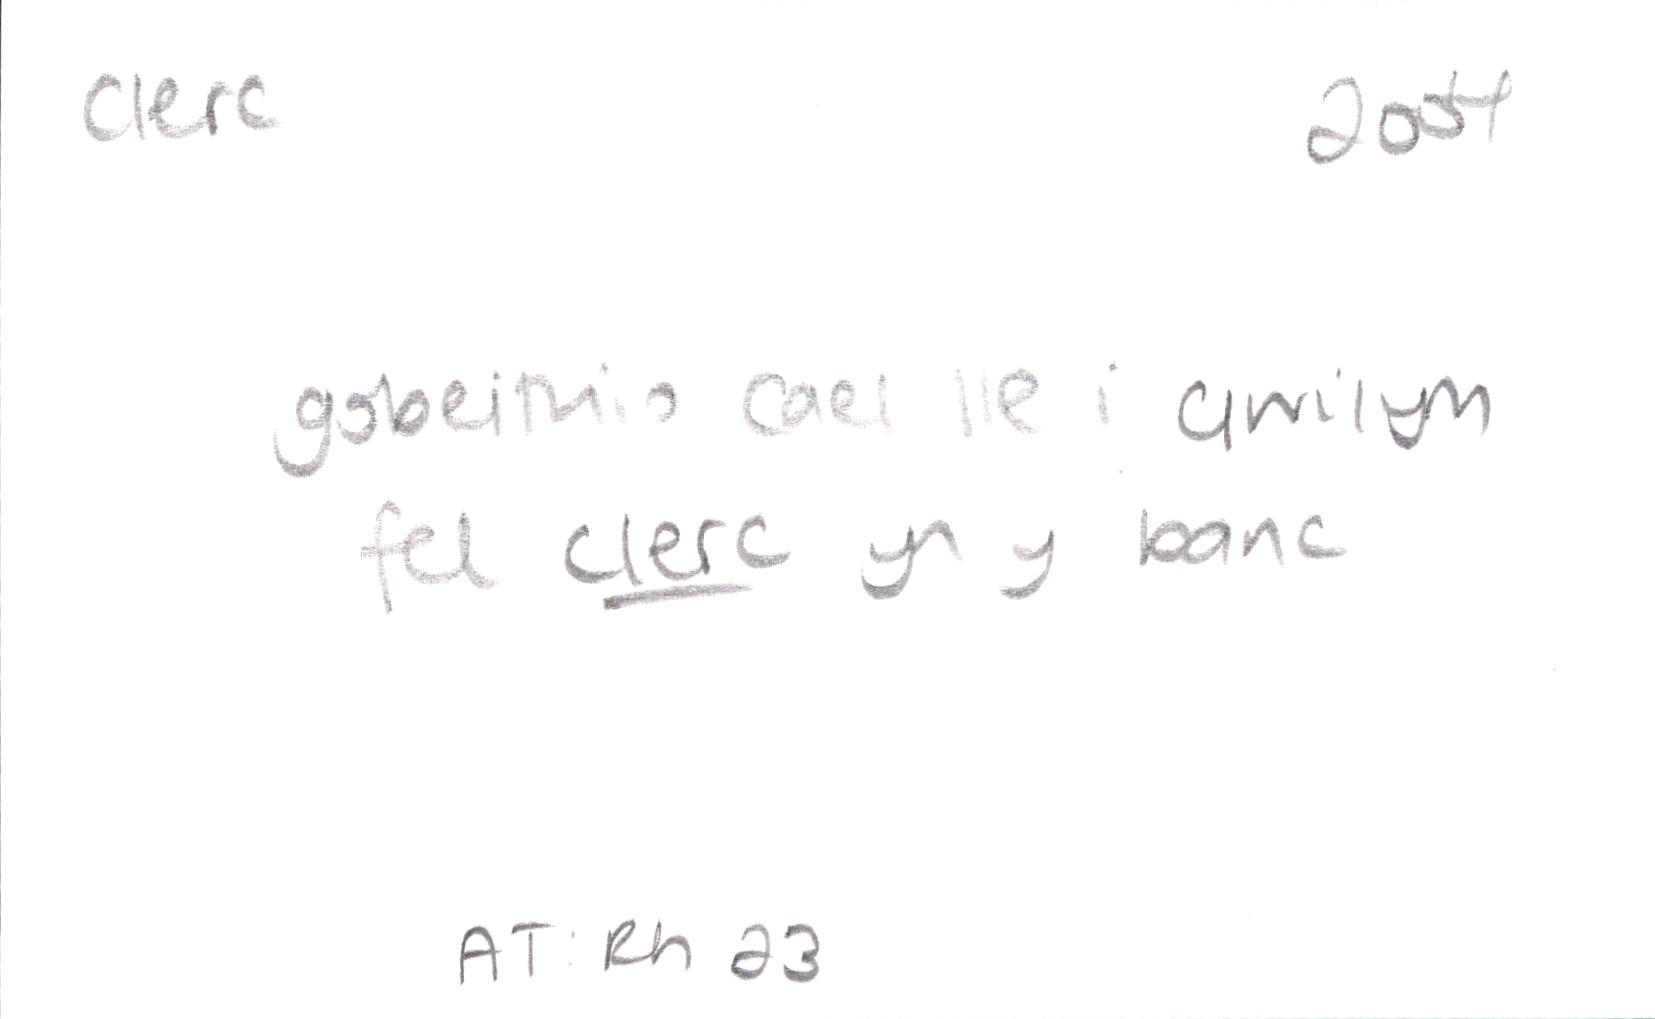 clerc 2004
gobeithio cael lle i Gwilym
fel clerc yn y banc
AT: Rh 23